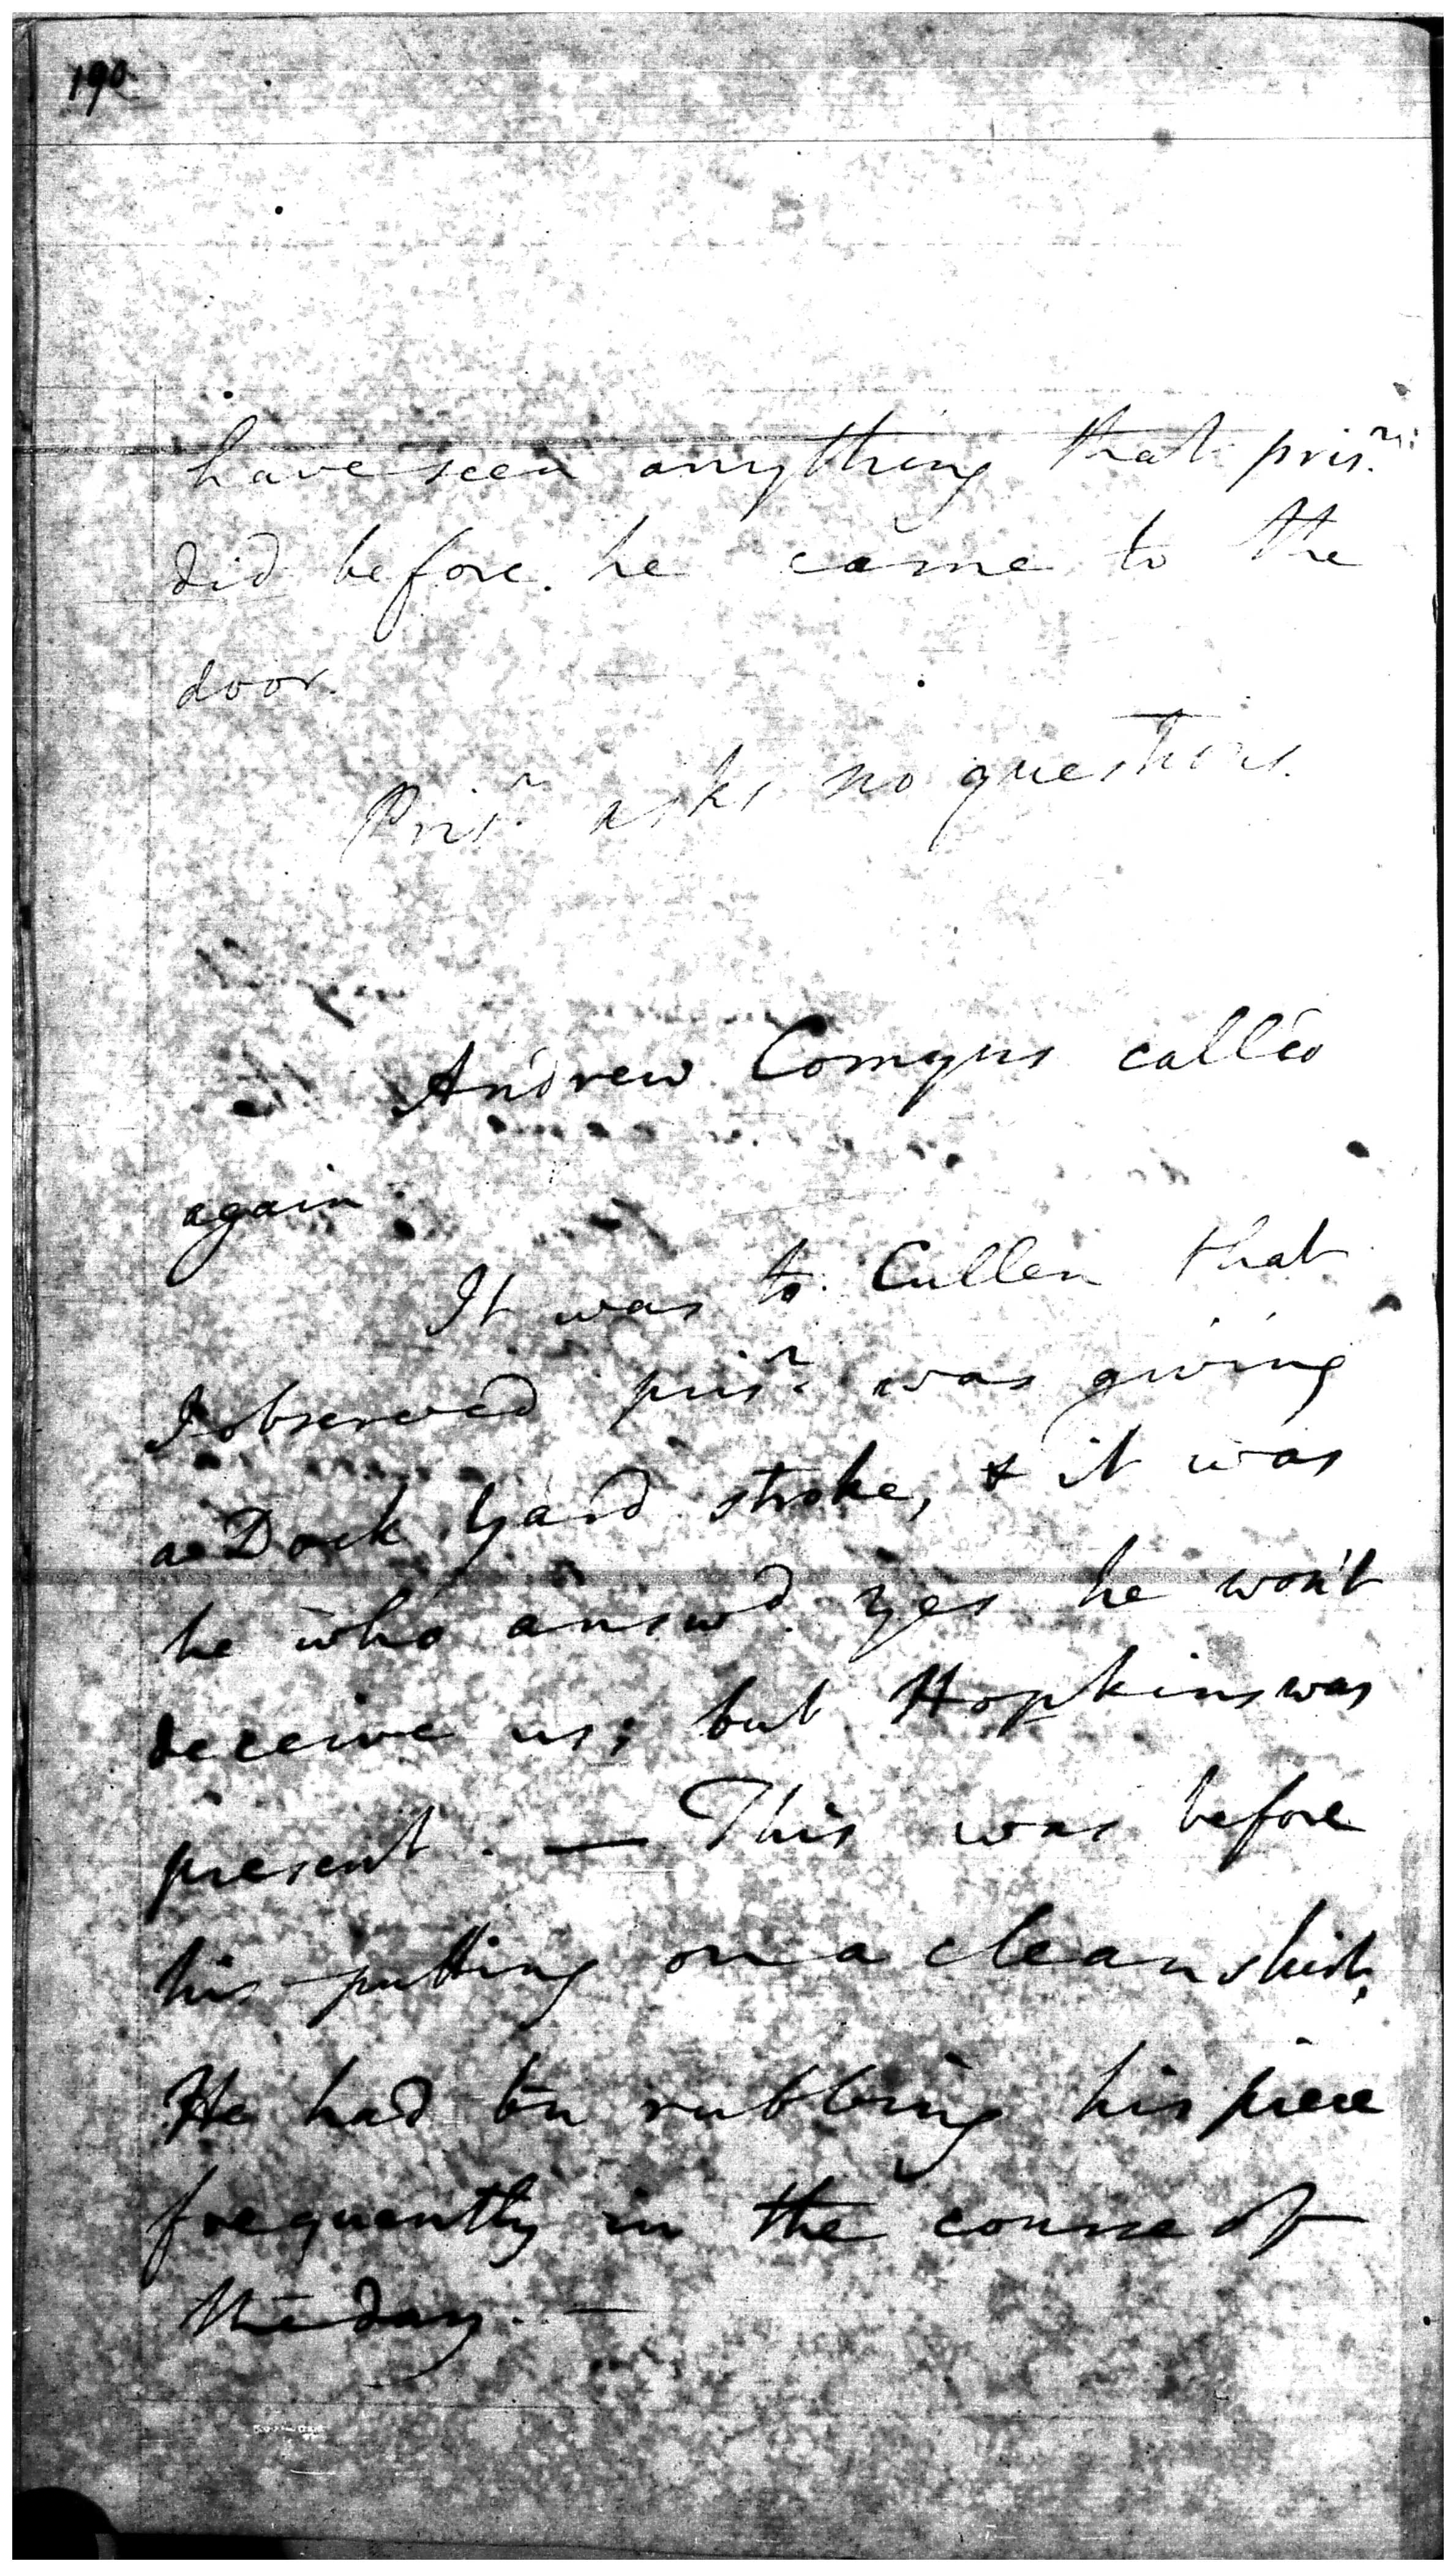 190
have seen anything that prisr.
did before he came to the
door.
Prisr. asks no questions.
Andrew Comyns called
again
It was to Cullen that
I observed prisr. was giving
a Dock Yard stroke, & it was
he who answd. yes he won't
deceive us; but Hopkins was
present. — This was before
his putting on a clean shirt,
He had bn rubbing his piece
frequently in the course of
the day. —